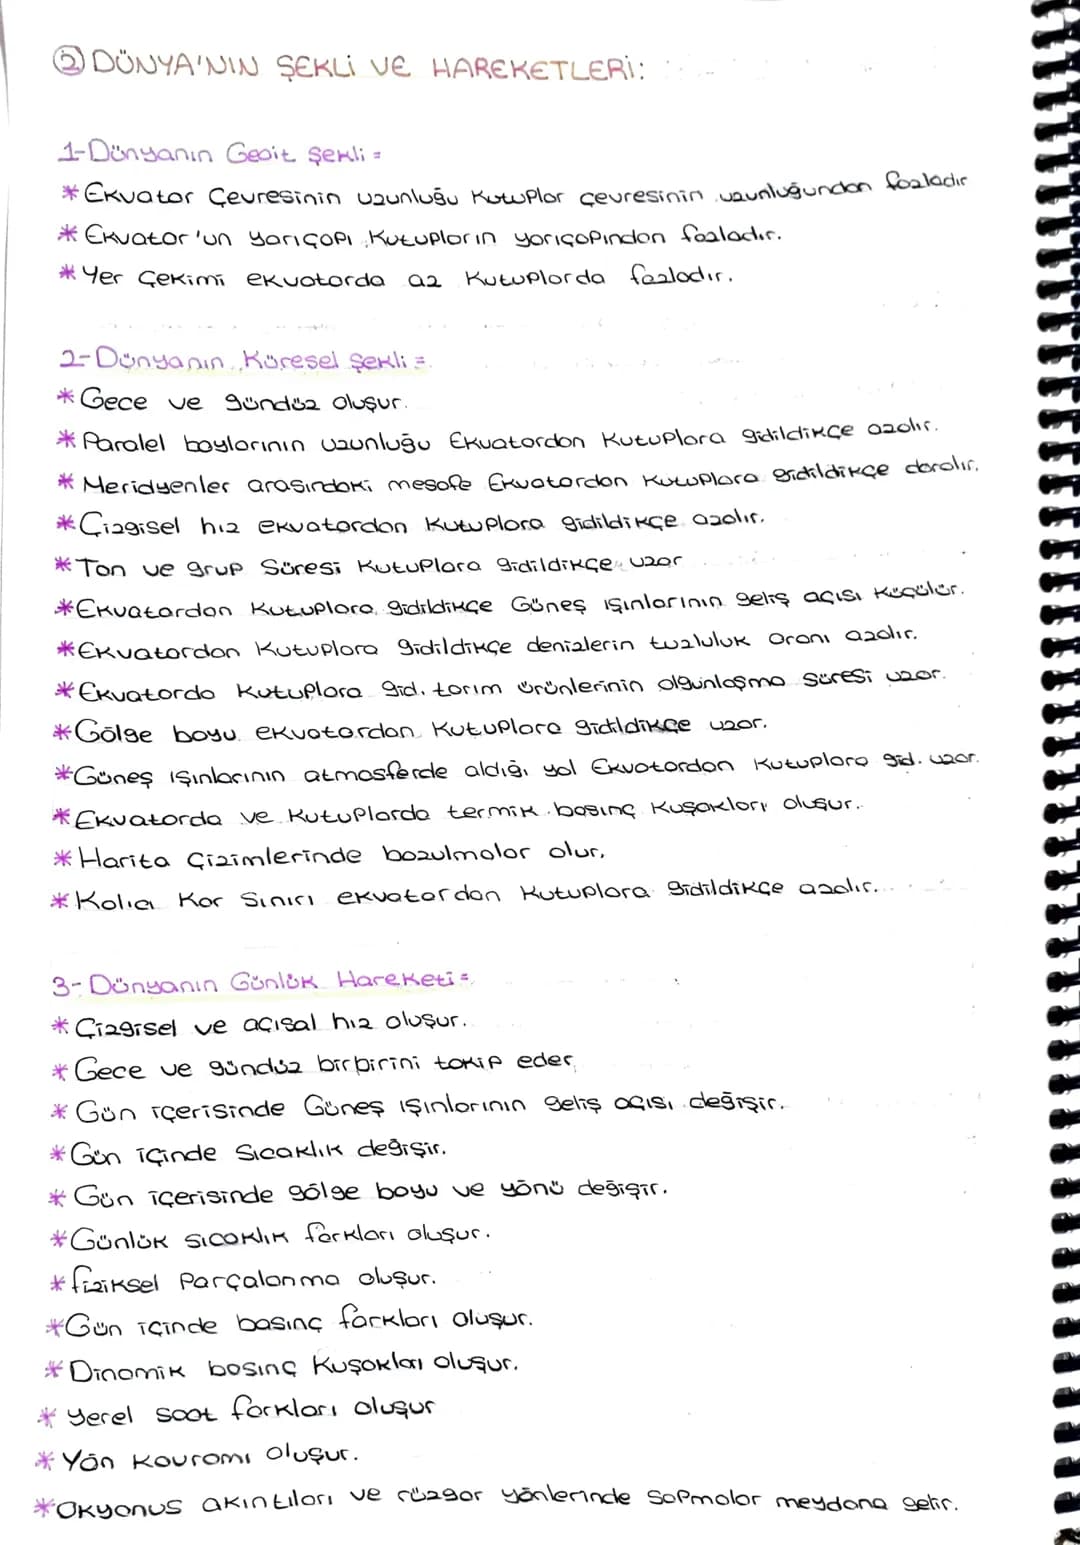 ② DÜNYA'NIN ŞEKLİ VE HAREKETLERİ:
1-Dünyanın Geoit Şekli =
* Ekvator Çevresinin uzunluğu Kutuplar çevresinin uzunluğundan fazladır
* Ekvator'un yarıçapı Kutupların yarıçapından fazladır.
* Yer Çekimi ekvatorda az Kutuplarda fazladır.
2-Dünyanın Küresel Şekli =
* Gece ve gündüz oluşur.
* Paralel boylarının uzunluğu Ekvatordan Kutuplara gidildikçe azalır.
* Meridyenler arasındaki mesafe Ekvatordan Kutuplara gidildikçe daralır.
* Çizgisel hız ekvatordan Kutuplara gidildikçe azalır.
* Tan ve grup Süresi Kutuplara gidildikçe uzar
* Ekvatordan Kutuplara gidildikçe Güneş ışınlarının geliş açısı küçülür.
* Ekvatordan Kutuplara gidildikçe denizlerin tuzluluk oranı azalır.
* Ekvatorda Kutuplara gid. tarım ürünlerinin olgunlaşma süresi uzar.
* Gölge boyu ekvatordan Kutuplara gidildikçe uzar.
* Güneş ışınlarının atmosferde aldığı yol Ekvatordan Kutuplara gid. uzar.
* Ekvatorda ve Kutuplarda termik basınç Kuşakları oluşur.
* Harita Çizimlerinde bozulmalar olur.
* Kalıcı Kar Sınırı ekvatordan Kutuplara gidildikçe azalır.
3- Dünyanın Günlük Hareketi =
* Çizgisel ve açısal hız oluşur.
* Gece ve gündüz birbirini takip eder
* Gün içerisinde Güneş ışınlarının geliş açısı değişir.
* Gün içinde Sıcaklık değişir.
* Gün içerisinde gölge boyu ve yönü değişir.
* Günlük sıcaklık farkları oluşur.
* fiziksel Parçalanma oluşur.
* Gün içinde basınç farkları oluşur.
* Dinamik basınç Kuşakları oluşur.
* Yerel saat farkları oluşur
* Yön kavramı oluşur.
* Okyanus akıntıları ve rüzgar yönlerinde sapmalar meydana gelir.